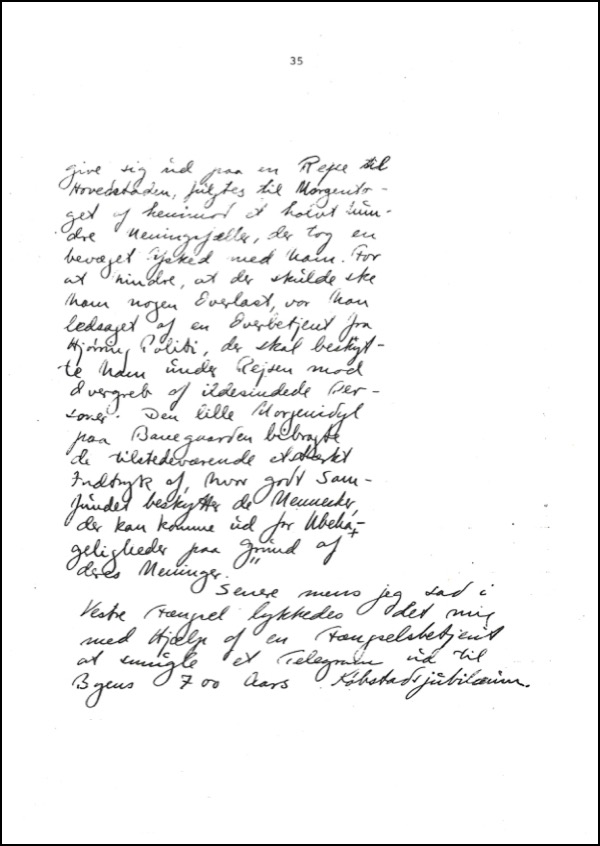 35
give sig ud paa en Rejse til
Hovedstaden, fulgtes til Morgento-
get af henimod et halvt Hun-
dre Meningsfæller, der tog en
bevæget Afsked med ham. For
at hindre, at der skulde ske
ham nogen Overlast, var han
ledsaget af en Overbetjent fra
Hjørring Politi, der skal beskyt-
te ham under Rejsen mod
Overgreb af ildesindede Per-
soner. Den lille Morgenidyl
paa Banegaarden bibragte
de tilstedeværende et stærkt
Indtryk af, hvor godt Sam-
fundet beskytter de Mennesker,
der kan komme ud for Ubeha-
geligheder paa Grund af
deres Meninger.
Senere mens jeg sad i
Vestre Fængsel lykkedes det mig
med Hjælp af en Fængselsbetjent
at smugle et Telegram ud til
Byens 700 Aars Købstadsjubilæum.